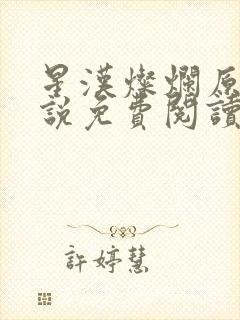 星漢燦爛原
說免費閱讀
許婷慧